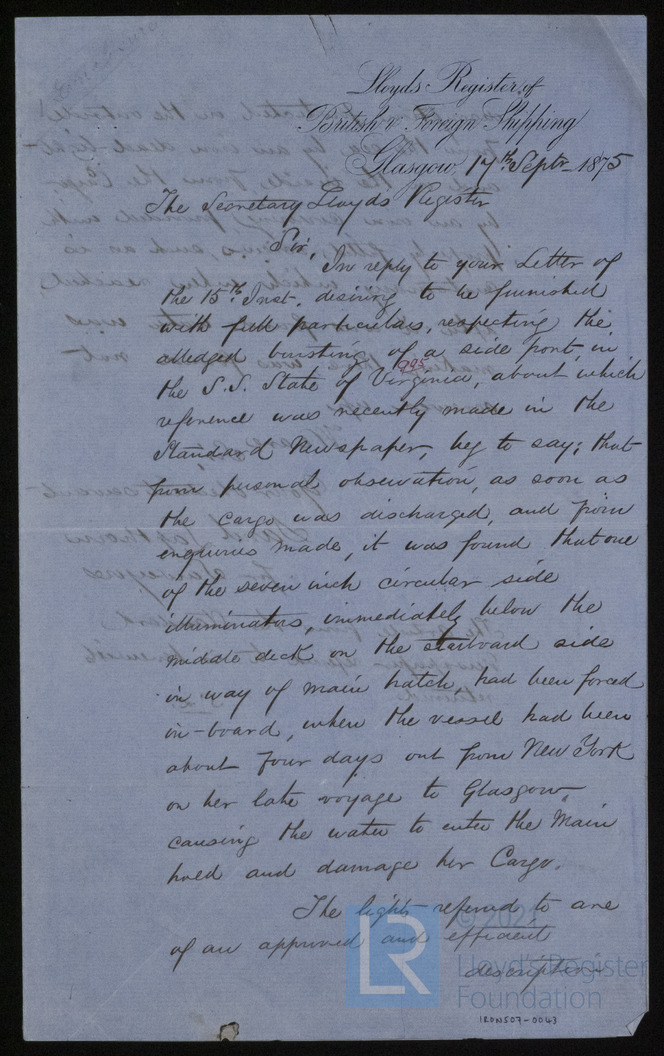 Lloyds Register of
British & Foreign Shipping
Glasgow, 17th Septr 1875
The Secretary Lloyds Register
Sir,
In reply to your Letter of
the 15th Inst. desiring to be furnished
with full particulars, respecting the
alledged bursting of a side port, in
the S.S. State of Virginia, about which
995
reference was recently made in the
Standard Newspaper, beg to say; that
from personal observation, as soon as
the cargo was discharged, and from
enquiries made, it was found that one
of the seven inch circular side
illuminators, immediately below the
middle deck on the starboard side
in way of main hatch, had been forced
in-board, when the vessel had been
about four days out from New York
on her late voyage to Glasgow,
causing the water to enter the Main
hold and damage her Cargo.
The light referred to are
of an approved and efficient
description
© 202
LR
Lloyd's Register
Foundation
IRON507-0043